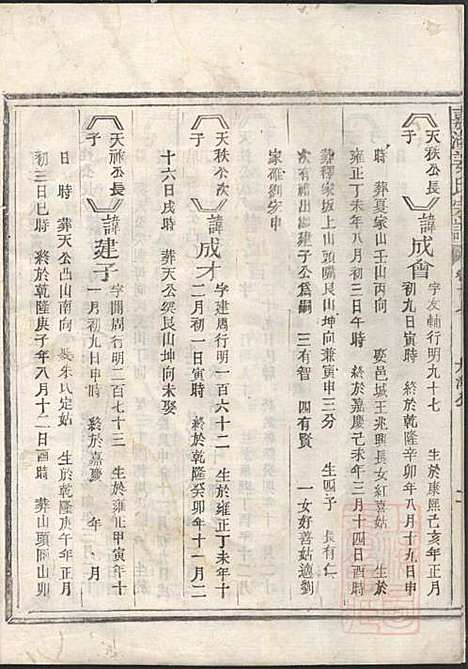 天秩公長子
諱成會
字友輔行明九十七　生於康熙己亥年八月
初九日寅時　終於乾隆辛卯年八月十九日申
時　葬夏家山壬山丙向　娶邑城王兆興長女紅喜姑　生於
雍正丁未年八月初三日午時　終於嘉慶己未年三月十四日酉時
葬釋家坂上山頭艮山坤向兼寅申三分　生四子　長有仁
次有補出繼建子公爲嗣　三有智　四有賢　一女好善姑適劉
家
天秩公次子
諱成才
字建周行明一百六十二　生於雍正丁未年十
二月初一日寅時　終於乾隆癸卯年十一月二
十六日戌時　葬天公梁艮山坤向未娶
天祚公長子
諱建子
字開周行明二百七十三　生於雍正甲寅年十
一月初九日申時　終於嘉慶　年　月
日　時　葬天公凸山南向　娶朱氏定姑　生於乾隆庚午年正月
初三日巳時　終於乾隆庚子年八月十二日酉時　葬山頭園山卯